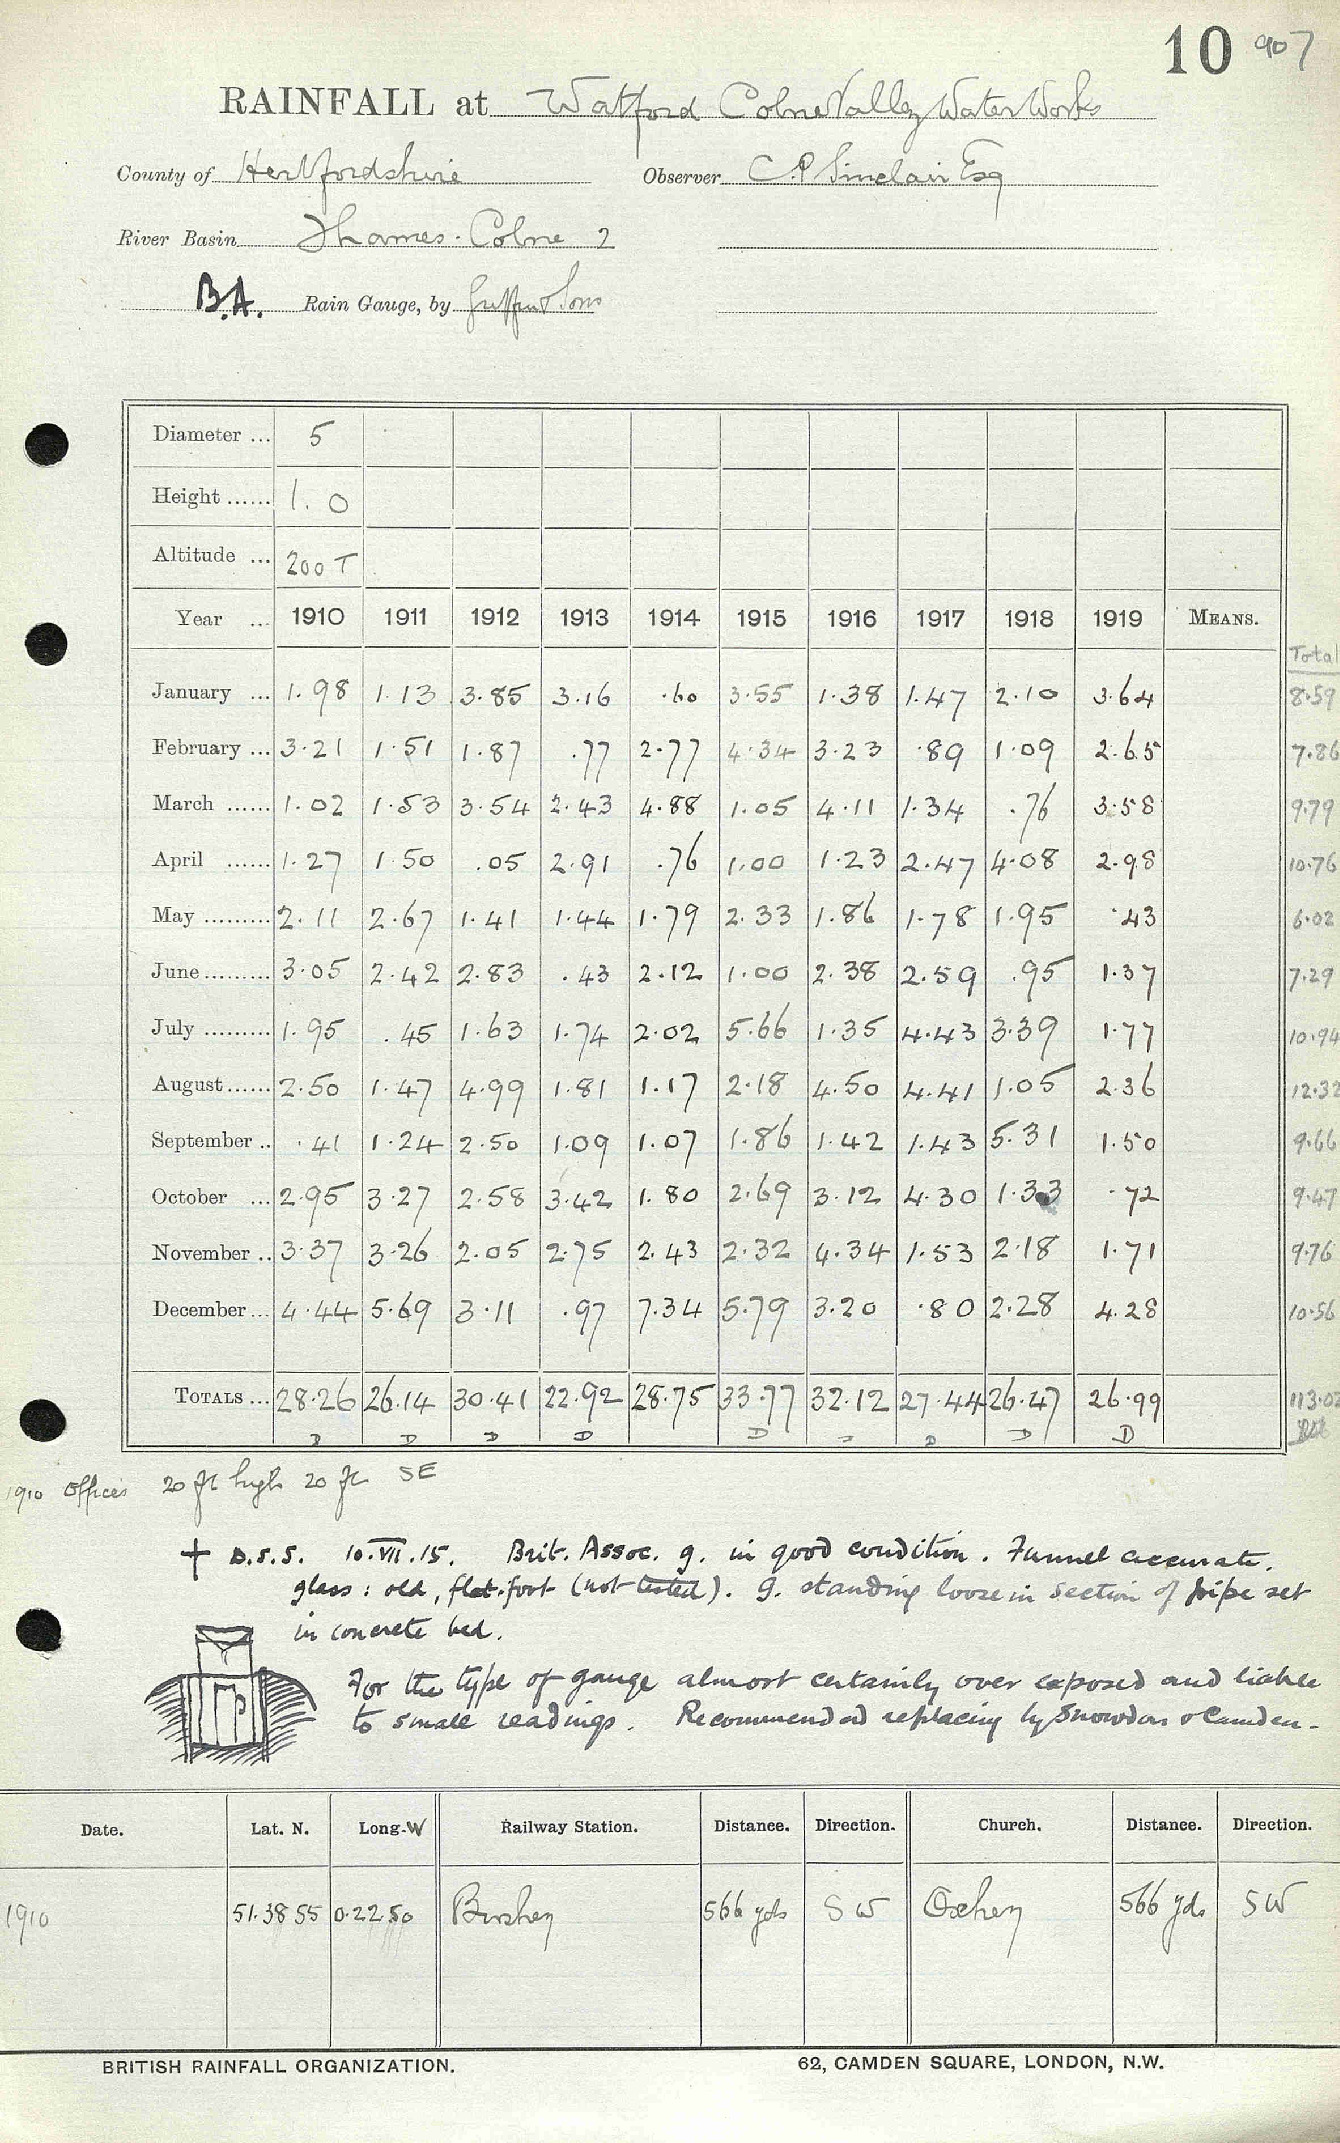 10 907
RAINFALL at Watford Colne Valley Water Works
County of Hertfordshire Observer C.P. Sinclair Esq
River Basin Thames. Colne 2
B.A. Rain Gauge, by & Sons
Diameter ... 5
Height ...... 1.0
Altitude ... 200 T
Year ... 1910 1911 1912 1913 1914 1915 1916 1917 1918 1919 MEANS.
Total
January ... 1.98 1.13 3.85 3.16 .60 3.55 1.38 1.47 2.10 3.64 8.59
February ... 3.21 1.51 1.87 .77 2.77 4.34 3.23 .89 1.09 2.65 7.86
March ...... 1.02 1.53 3.54 2.43 4.88 1.05 4.11 1.34 .76 3.58 9.79
April ...... 1.27 1.50 .05 2.91 .76 1.00 1.23 2.47 4.08 2.98 10.76
May ......... 2.11 2.67 1.41 1.44 1.79 2.33 1.86 1.78 1.95 .43 6.02
June ......... 3.05 2.42 2.83 .43 2.12 1.00 2.38 2.59 .95 1.37 7.29
July ......... 1.95 .45 1.63 1.74 2.02 5.66 1.35 4.43 3.39 1.77 10.94
August ...... 2.50 1.47 4.99 1.81 1.17 2.18 4.50 4.41 1.05 2.36 12.32
September .. .41 1.24 2.50 1.09 1.07 1.86 1.42 1.43 5.31 1.50 9.66
October ... 2.95 3.27 2.58 3.42 1.80 2.69 3.12 4.30 1.33 .72 9.47
November .. 3.37 3.26 2.05 2.75 2.43 2.32 4.34 1.53 2.18 1.71 9.76
December ... 4.44 5.69 3.11 .97 7.34 5.79 3.20 .80 2.28 4.28 10.56
TOTALS ... 28.26 26.14 30.41 22.92 28.75 33.77 32.12 27.44 26.47 26.99 113.02
D D D D D D D D
1910 Offices 20 ft high 20 ft SE
+ D.S.S. 10.VII.15. Brit. Assoc. g. in good condition. Funnel accurate.
glass: old, flat-foot (not tested). g. standing loose in section of pipe set
in concrete bed.
For the type of gauge almost certainly over exposed and liable
to small readings. Recommended replacing by Snowdon or Camden.
Date. Lat. N. Long. W Railway Station. Distance. Direction. Church. Distance. Direction.
1910 51.38 55 0.22.50 Bushey 566 yds SW Oxhey 566 yds SW
BRITISH RAINFALL ORGANIZATION. 62, CAMDEN SQUARE, LONDON, N.W.